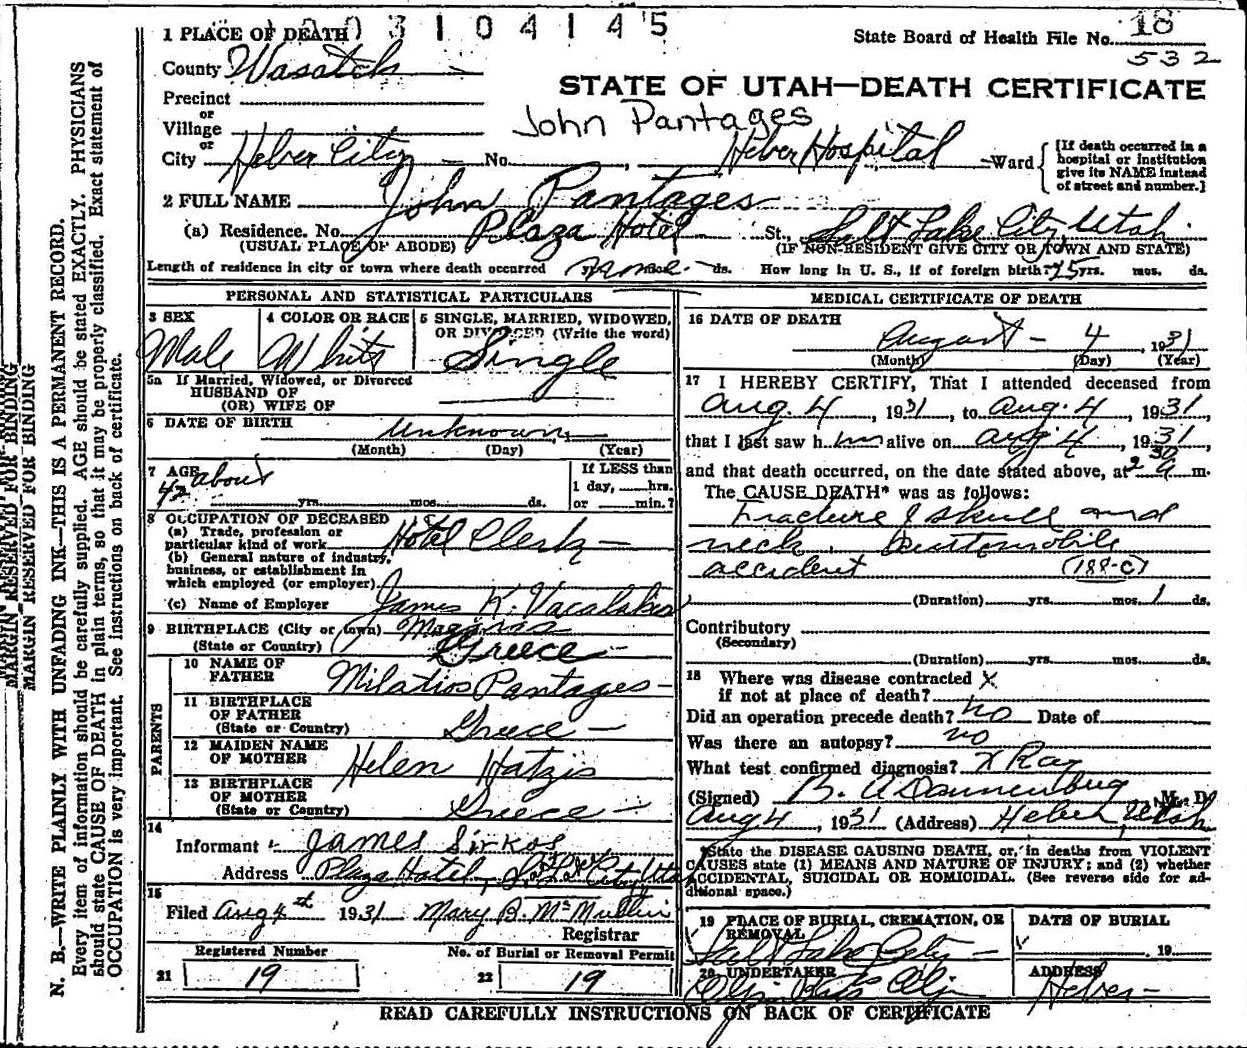 3104145
1 PLACE OF DEATH
State Board of Health File No. 18
532
County Wasatch
STATE OF UTAH—DEATH CERTIFICATE
Precinct
or
Village
John Pantages
or
City Heber City No. Heber Hospital Ward
[If death occurred in a hospital or institution give its NAME instead of street and number.]
2 FULL NAME John Pantages
(a) Residence. No. Plaza Hotel St., Salt Lake City, Utah
(USUAL PLACE OF ABODE) (IF NON-RESIDENT GIVE CITY OR TOWN AND STATE)
Length of residence in city or town where death occurred ds. How long in U. S., if of foreign birth? yrs. mos. ds.
PERSONAL AND STATISTICAL PARTICULARS
3 SEX
Male
4 COLOR OR RACE
White
5 SINGLE, MARRIED, WIDOWED,
OR DIVORCED (Write the word)
Single
5a If Married, Widowed, or Divorced
HUSBAND OF
(OR) WIFE OF
6 DATE OF BIRTH Unknown
(Month) (Day) (Year)
7 AGE about
42 yrs. mos. ds.
If LESS than
1 day, hrs.
or min.?
8 OCCUPATION OF DECEASED
(a) Trade, profession or
particular kind of work Hotel Clerk
(b) General nature of industry,
business, or establishment in
which employed (or employer)
(c) Name of Employer James K.
9 BIRTHPLACE (City or town)
(State or Country) Greece
PARENTS
10 NAME OF
FATHER Milatios Pantages
11 BIRTHPLACE
OF FATHER
(State or Country) Greece
12 MAIDEN NAME
OF MOTHER Helen Hatzis
13 BIRTHPLACE
OF MOTHER
(State or Country) Greece
14
Informant James Sirkos
Address Plaza Hotel, Salt Lake City Utah
15
Filed Aug 4 1931 Mary B. McMullin
Registrar
Registered Number
21 19
No. of Burial or Removal Permit
22 19
MEDICAL CERTIFICATE OF DEATH
16 DATE OF DEATH
August 4 1931
(Month) (Day) (Year)
17 I HEREBY CERTIFY, That I attended deceased from
Aug. 4, 1931, to Aug. 4, 1931,
that I last saw him alive on Aug 4, 1931,
and that death occurred, on the date stated above, at 2 30 a m.
The CAUSE DEATH* was as follows:
Fracture of skull and
neck. Automobile
accident (188-c)
(Duration) yrs. mos. 1 ds.
Contributory
(Secondary)
(Duration) yrs. mos. ds.
18 Where was disease contracted X
if not at place of death?
Did an operation precede death? no Date of
Was there an autopsy? no
What test confirmed diagnosis? X Ray
(Signed) B. A Dannenburg M. D.
Aug 4, 1931 (Address) Heber, Utah
*State the DISEASE CAUSING DEATH, or, in deaths from VIOLENT
CAUSES state (1) MEANS AND NATURE OF INJURY; and (2) whether
ACCIDENTAL, SUICIDAL OR HOMICIDAL. (See reverse side for ad-
ditional space.)
19 PLACE OF BURIAL, CREMATION, OR
REMOVAL
Salt Lake City
DATE OF BURIAL
19
20 UNDERTAKER
ADDRESS
Heber
READ CAREFULLY INSTRUCTIONS ON BACK OF CERTIFICATE
MARGIN RESERVED FOR BINDING
MARGIN RESERVED FOR BINDING
N. B.—WRITE PLAINLY WITH UNFADING INK—THIS IS A PERMANENT RECORD.
Every item of information should be carefully supplied. AGE should be stated EXACTLY. PHYSICIANS
should state CAUSE OF DEATH in plain terms, so that it may be properly classified. Exact statement of
OCCUPATION is very important. See instructions on back of certificate.